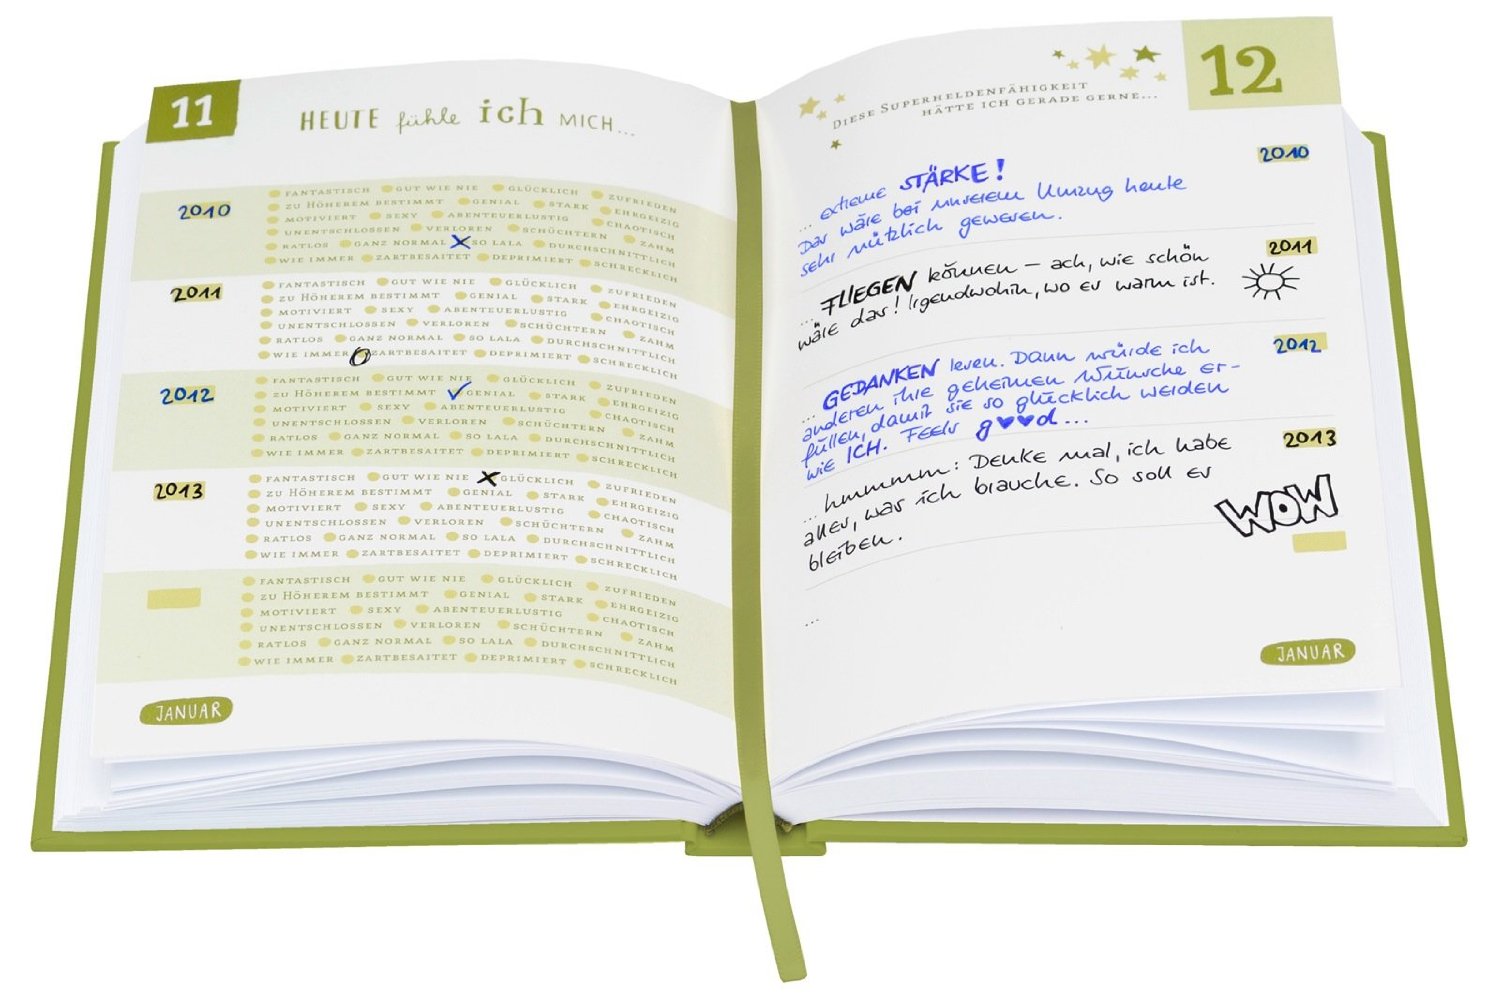 11
HEUTE fühle ich MICH...
2010
FANTASTISCH GUT WIE NIE GLÜCKLICH ZUFRIEDEN
ZU HÖHEREM BESTIMMT GENIAL STARK EHRGEIZIG
MOTIVIERT SEXY ABENTEUERLUSTIG CHAOTISCH
UNENTSCHLOSSEN VERLOREN SCHÜCHTERN ZAHM
RATLOS GANZ NORMAL X SO LALA DURCHSCHNITTLICH
WIE IMMER ZARTBESAITET DEPRIMIERT SCHRECKLICH
2011
FANTASTISCH GUT WIE NIE GLÜCKLICH ZUFRIEDEN
ZU HÖHEREM BESTIMMT GENIAL STARK EHRGEIZIG
MOTIVIERT SEXY ABENTEUERLUSTIG CHAOTISCH
UNENTSCHLOSSEN VERLOREN SCHÜCHTERN ZAHM
RATLOS GANZ NORMAL SO LALA DURCHSCHNITTLICH
WIE IMMER ZARTBESAITET DEPRIMIERT SCHRECKLICH
2012
FANTASTISCH GUT WIE NIE GLÜCKLICH ZUFRIEDEN
ZU HÖHEREM BESTIMMT ✓ GENIAL STARK EHRGEIZIG
MOTIVIERT SEXY ABENTEUERLUSTIG CHAOTISCH
UNENTSCHLOSSEN VERLOREN SCHÜCHTERN ZAHM
RATLOS GANZ NORMAL SO LALA DURCHSCHNITTLICH
WIE IMMER ZARTBESAITET DEPRIMIERT SCHRECKLICH
2013
FANTASTISCH GUT WIE NIE X GLÜCKLICH ZUFRIEDEN
ZU HÖHEREM BESTIMMT GENIAL STARK EHRGEIZIG
MOTIVIERT SEXY ABENTEUERLUSTIG CHAOTISCH
UNENTSCHLOSSEN VERLOREN SCHÜCHTERN ZAHM
RATLOS GANZ NORMAL SO LALA DURCHSCHNITTLICH
WIE IMMER ZARTBESAITET DEPRIMIERT SCHRECKLICH
FANTASTISCH GUT WIE NIE GLÜCKLICH ZUFRIEDEN
ZU HÖHEREM BESTIMMT GENIAL STARK EHRGEIZIG
MOTIVIERT SEXY ABENTEUERLUSTIG CHAOTISCH
UNENTSCHLOSSEN VERLOREN SCHÜCHTERN ZAHM
RATLOS GANZ NORMAL SO LALA DURCHSCHNITTLICH
WIE IMMER ZARTBESAITET DEPRIMIERT SCHRECKLICH
JANUAR
12
DIESE SUPERHELDENFÄHIGKEIT
HÄTTE ICH GERADE GERNE...
2010
... extreme STÄRKE!
Das wäre bei unserem Umzug heute
sehr nützlich gewesen.
2011
... FLIEGEN können – ach, wie schön
wäre das! Irgendwohin, wo es warm ist.
2012
... GEDANKEN lesen. Dann würde ich
anderen ihre geheimen Wünsche er-
füllen, damit sie so glücklich werden
wie ICH. Feels g♥♥d...
2013
... hmmmm: Denke mal, ich habe
alles, was ich brauche. So soll es
bleiben.
WOW
...
JANUAR